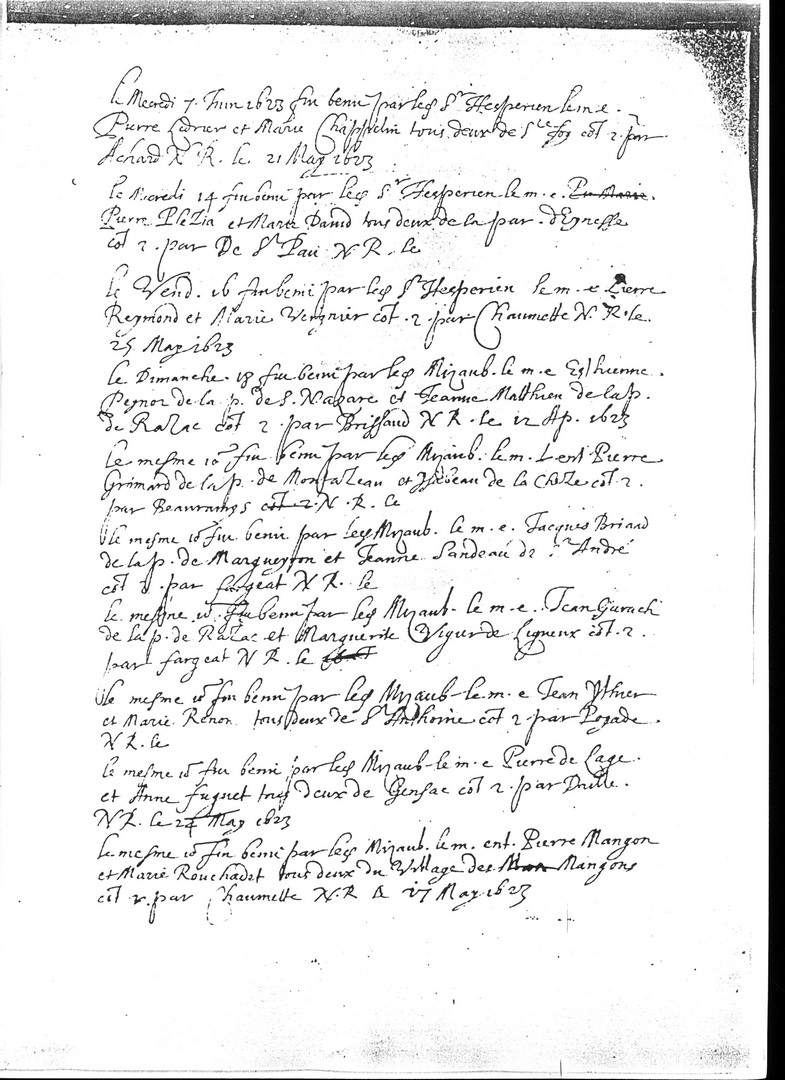 le Mecredi 7. Juin 1623 fut beni par led Sr Hesperien le m. e.
Pierre et Marie Chappelin tous deux de Ste foy cot 2. par
Achard N. R. le 21 May 1623
le Mecredi 14 fut beni par led Sr Hesperien le m. e.
Pierre et Marie David tous deux de la par. d'Eynesse
cot 2. par De St Pau N. R. le
le Vend. 16 fut beni par led Sr Hesperien le m. e Pierre
Reymond et Marie Vergnier cot. 2. par Chaumette N. R. le
25 May 1623
le Dimanche. 18 fut beni par led Mizaub. le m. e Esthienne
de la p. de S. Nazare et Jeanne Matthieu de la p.
de Razac cot 2. par Brissaud N R. le 12 Ap. 1623
le mesme fut beni par led Mizaub. le m. ent Pierre
Grimard de la p. de Montazeau et Isabeau de la Cheze cot. 2.
par N. R. le
le mesme fut beni par led Mizaub. le m. e. Jacques Briand
de la p. de Margueyron et Jeanne André
cot 2. par fargeat N R. le
le mesme fut beni par led Mizaub. le m. e. Jean
de la p. de Razac et Marguerite de Ligueux cot. 2.
par fargeat N R. le
le mesme fut beni par led Mizaub. le m. e Jean Ythier
et Marie Renon tous deux de St Anthoine cot 2. par
N R. le
le mesme fut beni par led Mizaub. le m. e Pierre de Lage.
et Anne fuguet tous deux de Gensac cot 2. par
N R. le 24 May 1623
le mesme fut beni par led Mizaub. le m. ent. Pierre Mangon
et Marie Rouchadet tous deux du Village des Mangons
cot 2. par Chaumette N. R le 27 May 1623